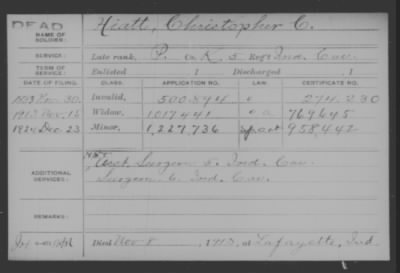 DEAD
NAME OF SOLDIER: Hiatt, Christopher C.
SERVICE: Late rank, P. Co. K. 5 Reg't Ind. Cav.
TERM OF SERVICE: Enlisted , 1 Discharged , 1
DATE OF FILING. CLASS. APPLICATION NO. LAW. CERTIFICATE NO.
Invalid,
1913 Nov. 16 Widow, 1017441 769645
1924 Dec. 23 Minor, 1,227,736 958442
ADDITIONAL SERVICES:
Asst. Surgeon 5. Ind. Cav.
Surgeon 6. Ind. Cav.
REMARKS:
Died Nov. 8 , 1913, at Lafayette, Ind.